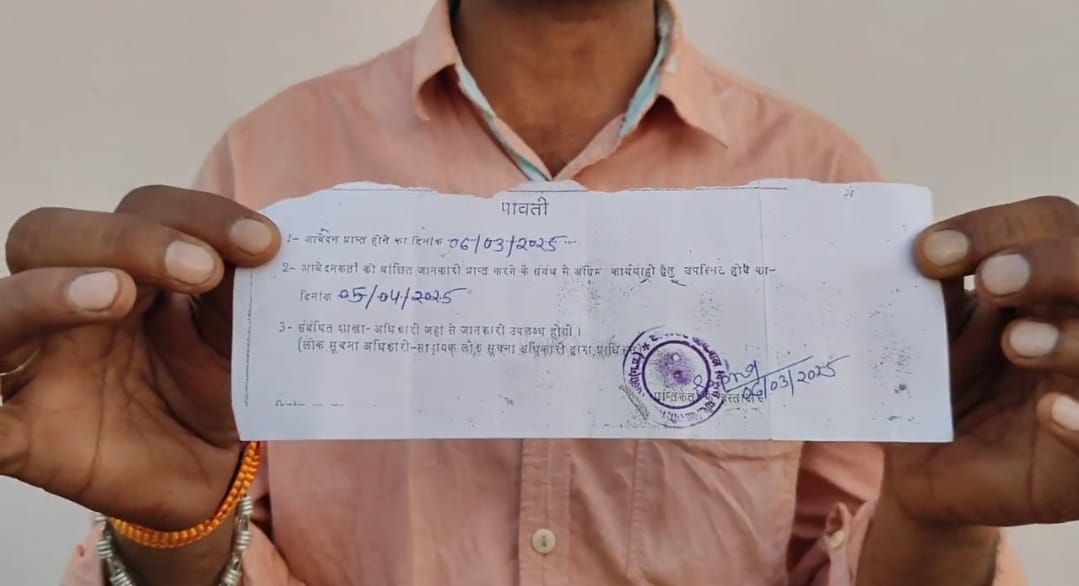 पावती
1- आवेदन प्राप्त होने का दिनांक 06/03/2025
2- आवेदनकर्ता को वांछित जानकारी प्राप्त करने के संबंध में अग्रिम कार्यवाही हेतु उपस्थित होने का-
दिनांक 05/04/2025
3- संबंधित शाखा- अधिकारी जहां से जानकारी उपलब्ध होगी।
(लोक सूचना अधिकारी-सहायक लोक सूचना अधिकारी द्वारा
06/03/2025